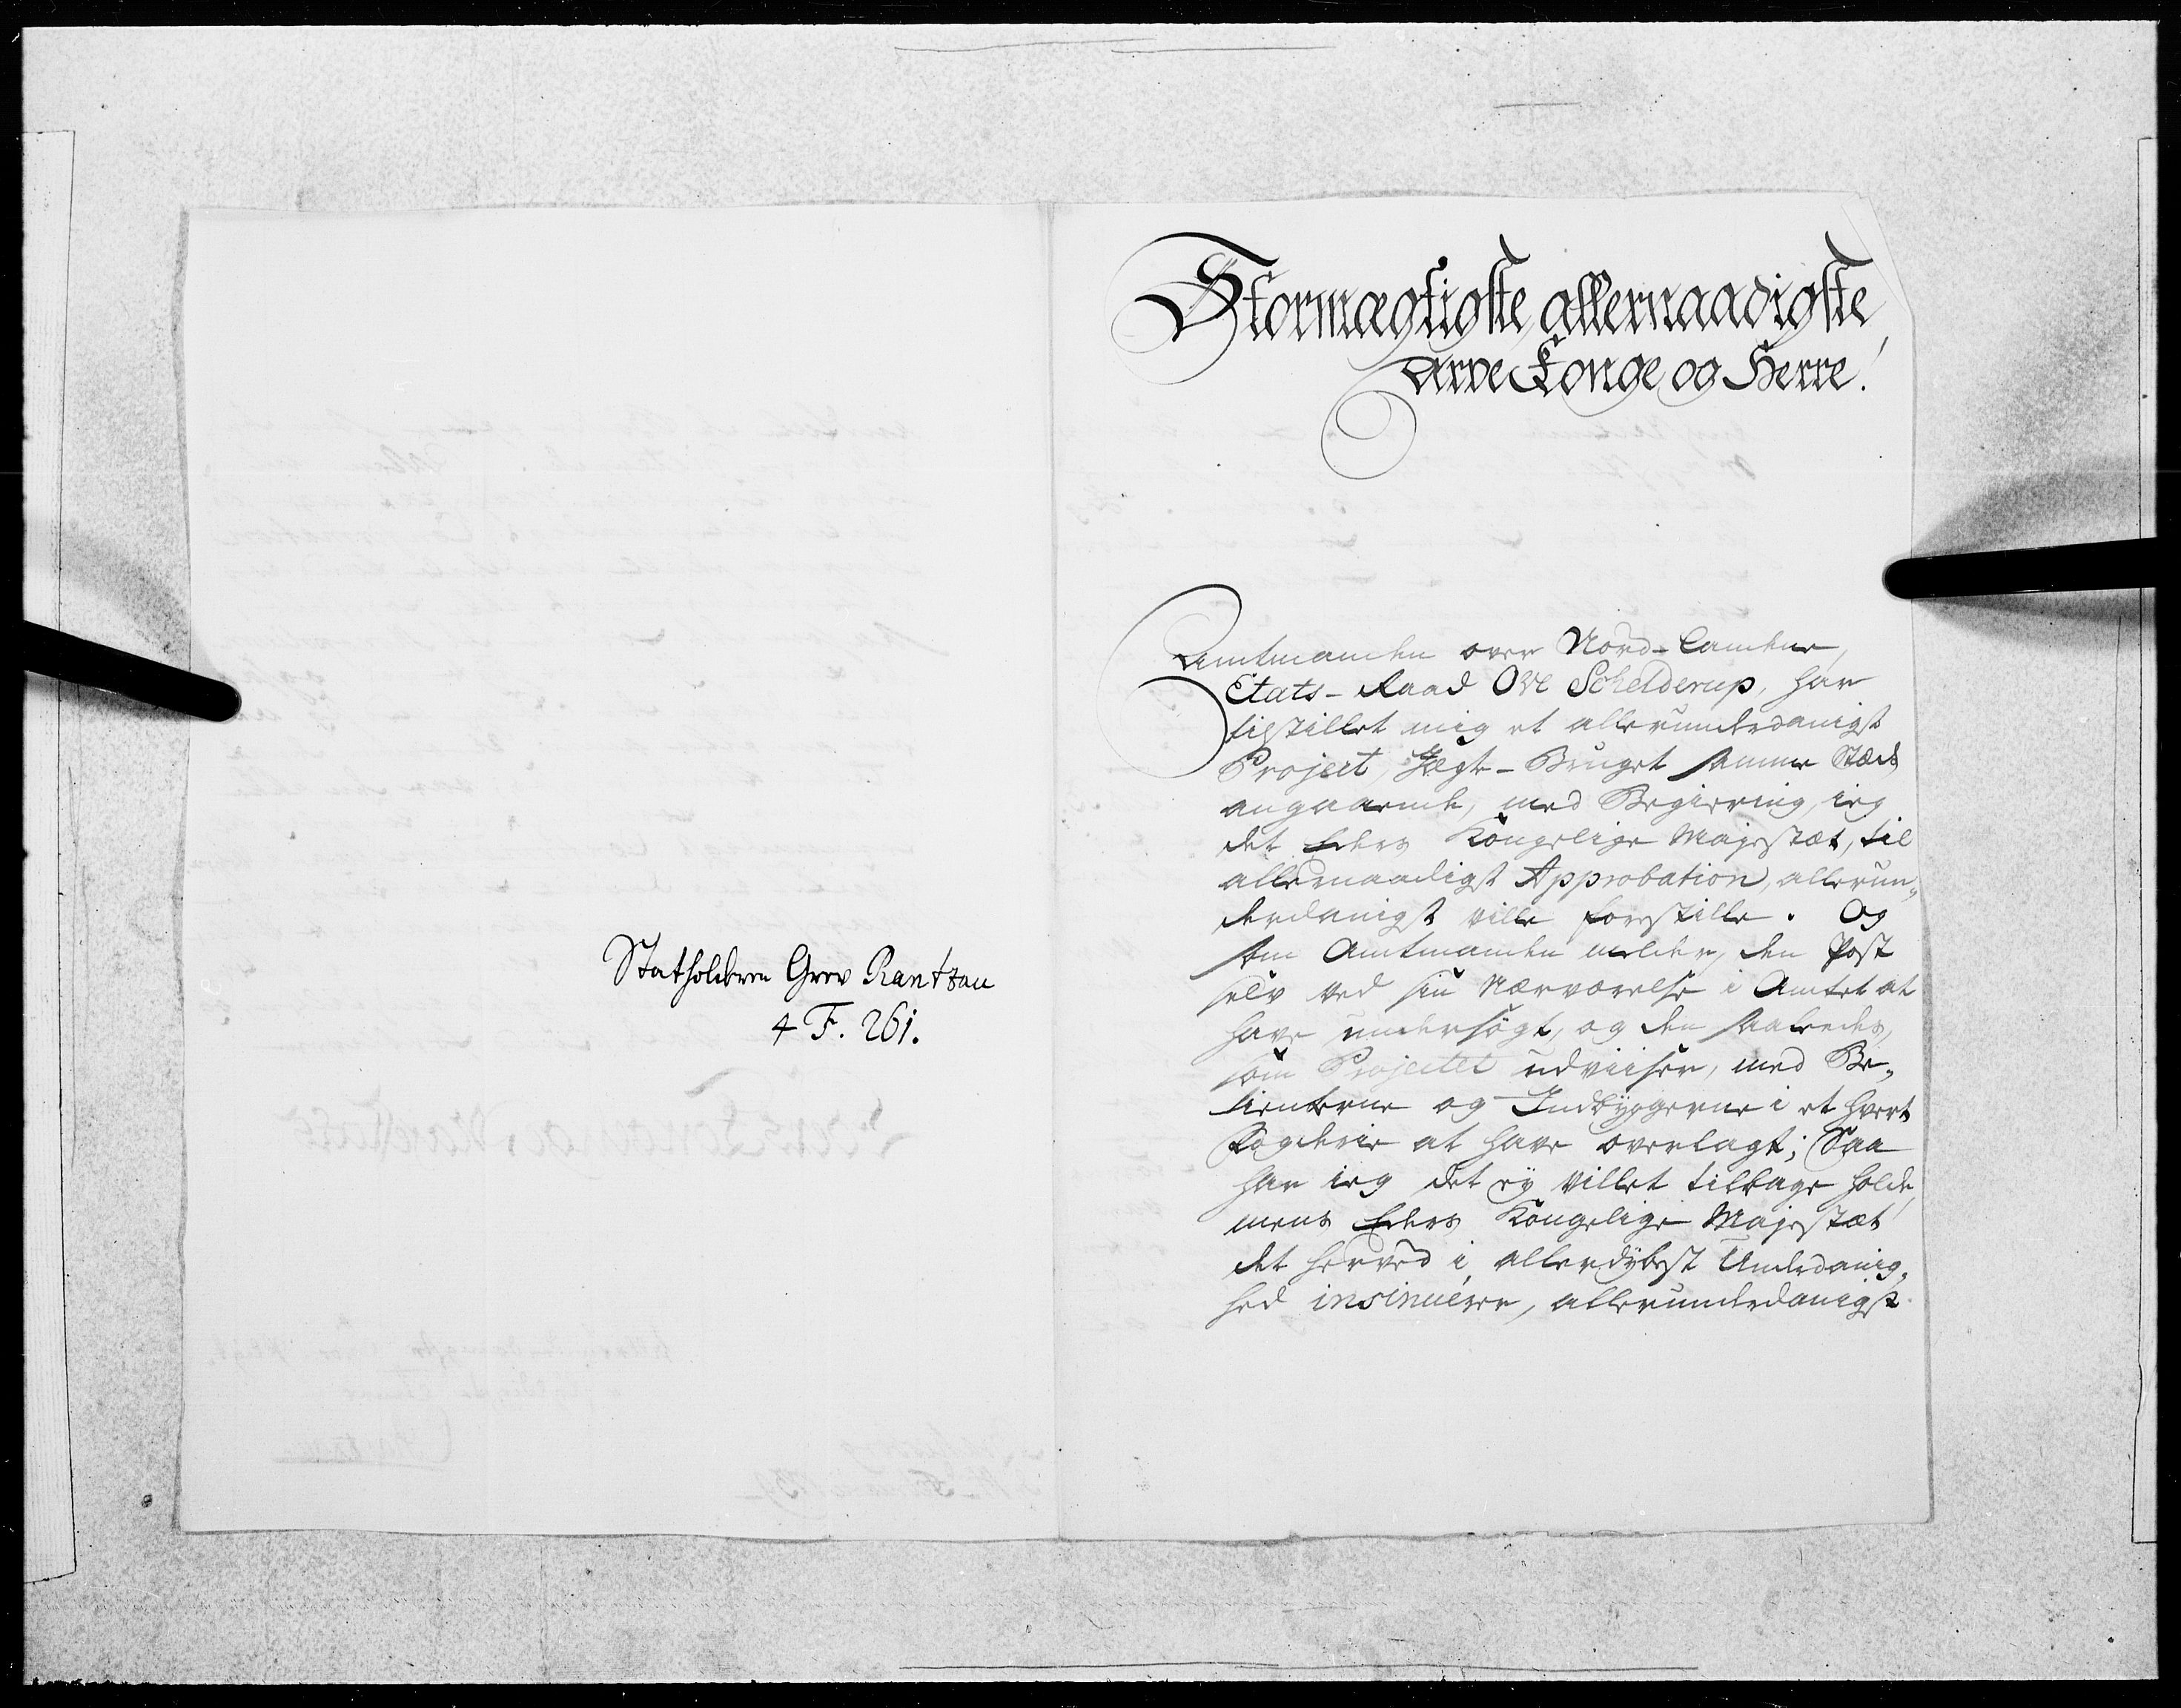 Statholderen Grev Rantzau
4 F. 261.
Stormægtigste allernaadigste,
Arve Konge og Herre!
Amtmanden over Nord-Landene,
Etats-Raad Ove Schelderup, har
tilstillet mig et allerunderdanigst
Project, Jægte-Bruget samme Stæds
angaaende, med Begiering, ieg
det Eders Kongelige Majestæt, til
allernaadigst Approbation, allerun„
derdanigst ville forestille. Og
som Amtmanden melder, den Post
selv ved sin Nærværelse i Amtet at
have undersøgt, og den saaledes,
som Projectet udviiser, med Be„
tienterne og Indbyggerne i et hvert
Fogderie at have overlagt; Saa
har ieg det ey villet tilbage holde,
mens Eders Kongelige Majestæt
det herved i allerdybest Underdanig„
hed insinuerer, allerunderdanigst